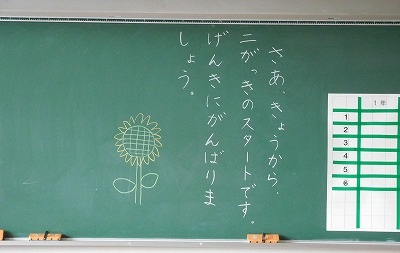 さあ、きょうから、
二がっきのスタートです。
げんきにがんばりま
しょう。
1年
1
2
3
4
5
6